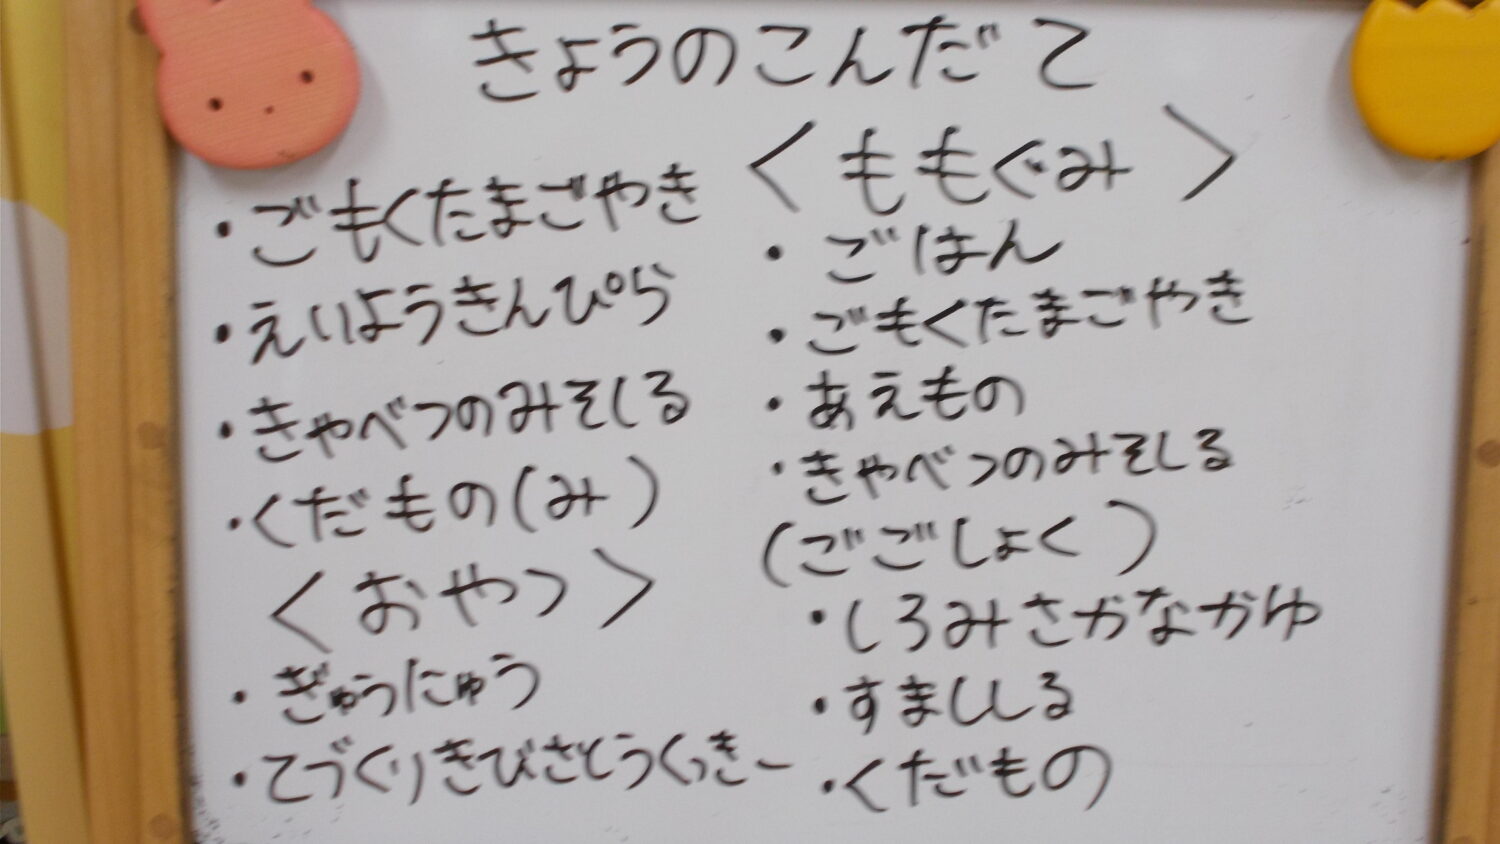 きょうのこんだて
・ごもくたまごやき
・えいようきんぴら
・きゃべつのみそしる
・くだもの(み)
〈おやつ〉
・ぎゅうにゅう
・てづくりきびさとうくっきー
〈ももぐみ〉
・ごはん
・ごもくたまごやき
・あえもの
・きゃべつのみそしる
(ごごしょく)
・しろみさかなかゆ
・すましじる
・くだもの